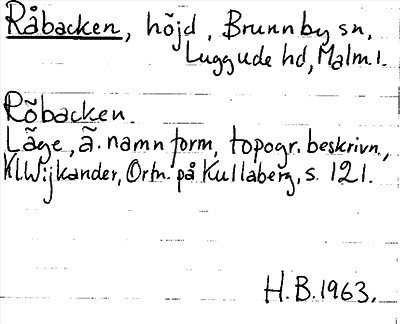 Råbacken, höjd, Brunnby sn,
Luggude hd, Malm. l.
Rõbacken.
Läge, ä. namnform, topogr. beskrivn.,
Kl. Wijkander, Ortn. på Kullaberg, s. 121.
H. B. 1963.